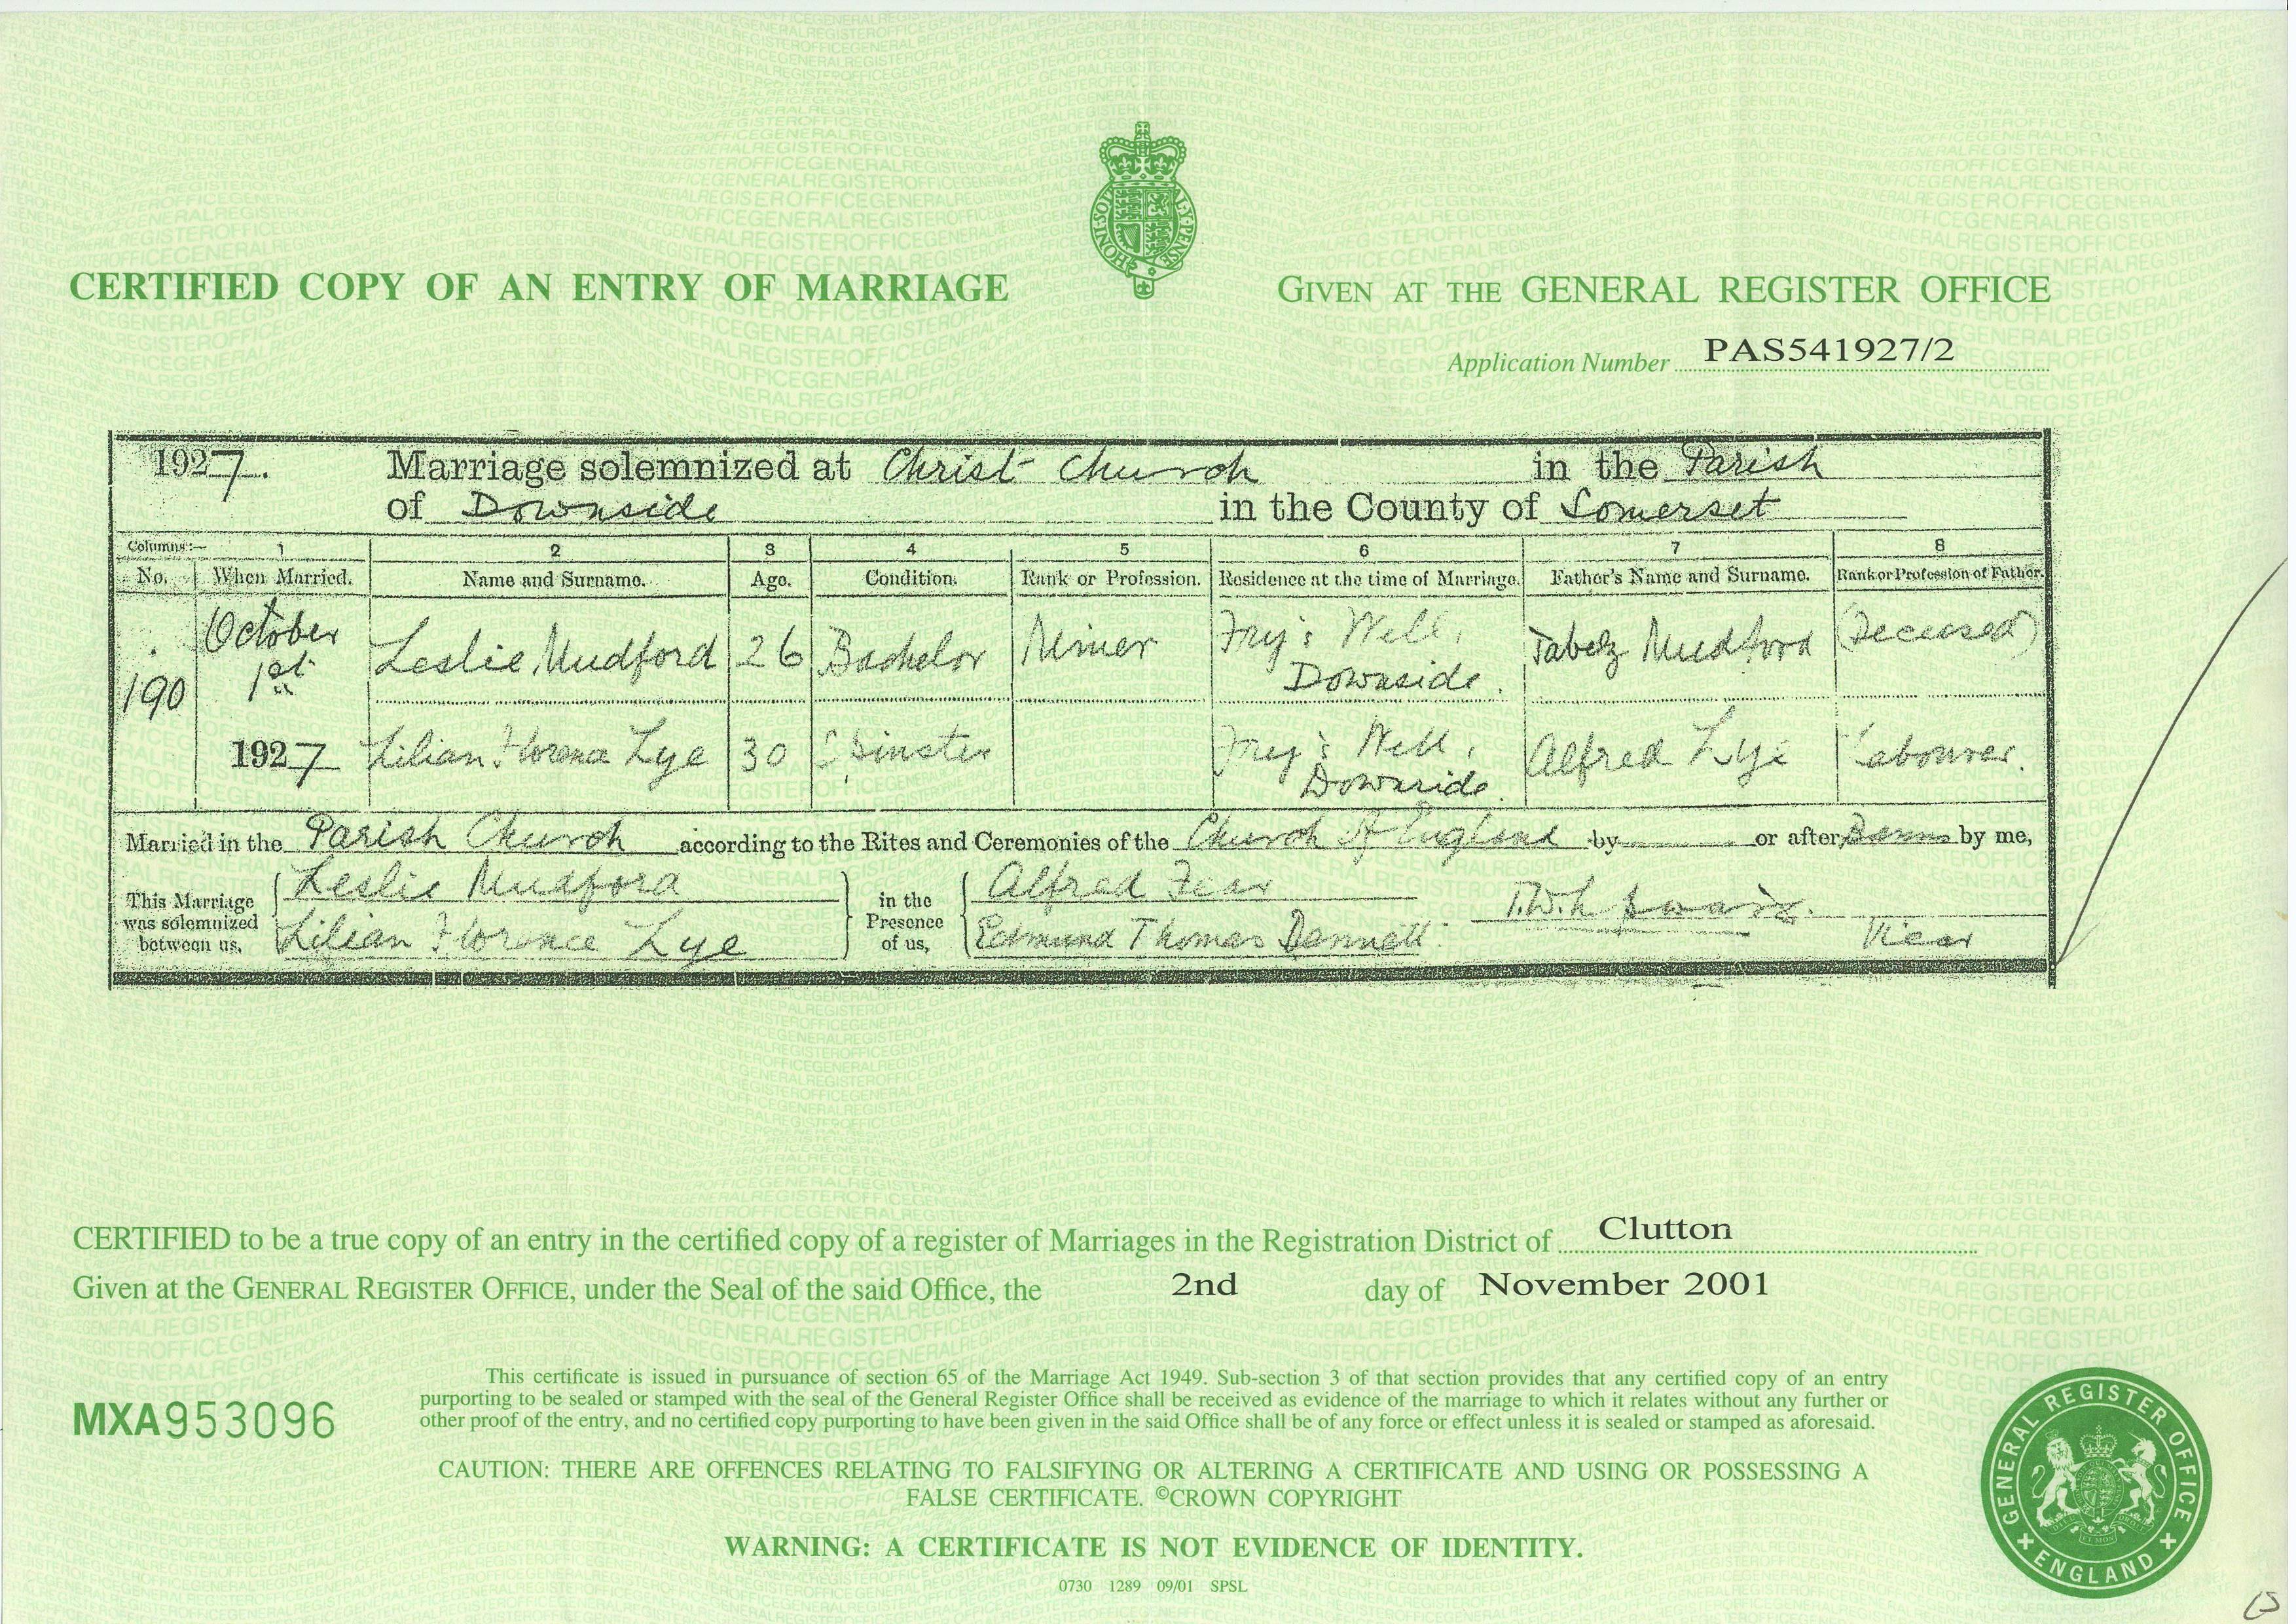 CERTIFIED COPY OF AN ENTRY OF MARRIAGE
GIVEN AT THE GENERAL REGISTER OFFICE
Application Number PAS541927/2
1927. Marriage solemnized at Christ Church in the Parish
of Downside in the County of Somerset
Columns:— 1 2 3 4 5 6 7 8
No. When Married. Name and Surname. Age. Condition. Rank or Profession. Residence at the time of Marriage. Father's Name and Surname. Rank or Profession of Father.
190 October 1st 1927
Leslie Mudford 26 Bachelor Miner Fry's Well, Downside. Jabez Mudford (Deceased)
Lilian Florence Lye 30 Spinster Frey's Well, Downside. Alfred Lye Labourer.
Married in the Parish Church according to the Rites and Ceremonies of the Church of England by or after Banns by me,
This Marriage was solemnized between us,
Leslie Mudford
Lilian Florence Lye
in the Presence of us,
Alfred Fear
Edmund Thomas Bennett
T.W.H.
Vicar
CERTIFIED to be a true copy of an entry in the certified copy of a register of Marriages in the Registration District of Clutton
Given at the GENERAL REGISTER OFFICE, under the Seal of the said Office, the 2nd day of November 2001
This certificate is issued in pursuance of section 65 of the Marriage Act 1949. Sub-section 3 of that section provides that any certified copy of an entry
purporting to be sealed or stamped with the seal of the General Register Office shall be received as evidence of the marriage to which it relates without any further or
other proof of the entry, and no certified copy purporting to have been given in the said Office shall be of any force or effect unless it is sealed or stamped as aforesaid.
MXA953096
CAUTION: THERE ARE OFFENCES RELATING TO FALSIFYING OR ALTERING A CERTIFICATE AND USING OR POSSESSING A
FALSE CERTIFICATE. ©CROWN COPYRIGHT
WARNING: A CERTIFICATE IS NOT EVIDENCE OF IDENTITY.
0730 1289 09/01 SPSL
GENERAL REGISTER OFFICE
ENGLAND